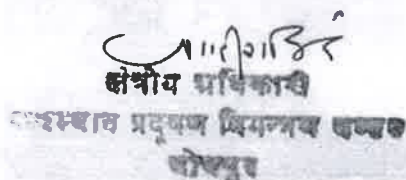 क्षेत्रीय अधिकारी
राजस्थान प्रदूषण नियन्त्रण मण्डल
जोधपुर